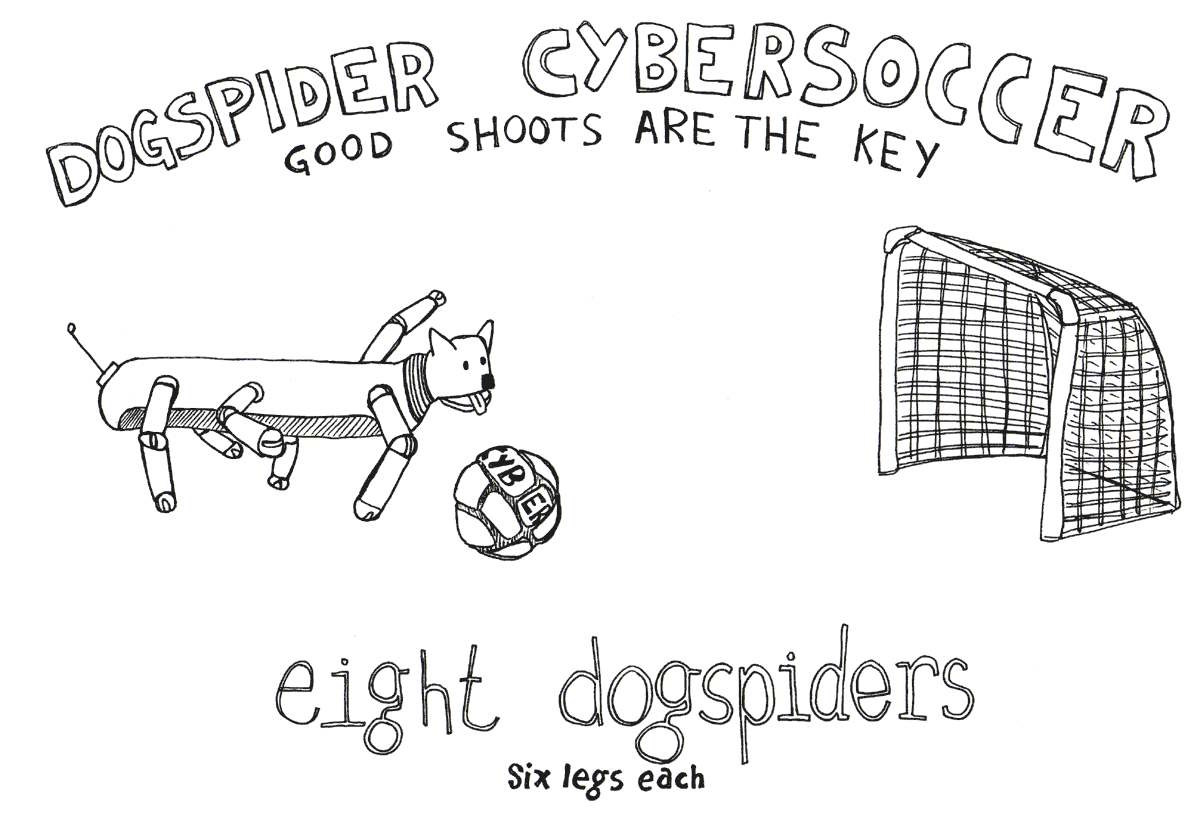 DOGSPIDER CYBERSOCCER
GOOD SHOOTS ARE THE KEY
CYB
ER
eight dogspiders
Six legs each